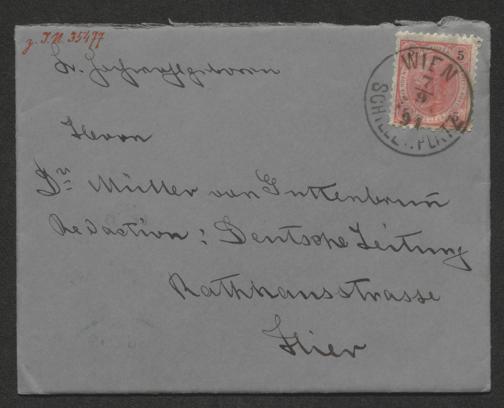 z. I.N. 35477
5
WIEN
7/9
91
SCHILLERPLATZ
Sr. Hochwohlgeboren
Herrn
Dr Müller von Guttenbrunn
Redaction: Deutsche Zeitung
Rathhausstrasse
Hier